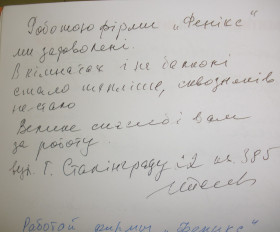 Роботою фірми „Фенікс“
ми задоволені.
В кімнатах і на балконі
стало тепліше, сквозняків
не стало
Велике спасибі вам
за роботу.
вул. Г. Сталінграду 12 кв 385
Работой фирмы „Феникс“